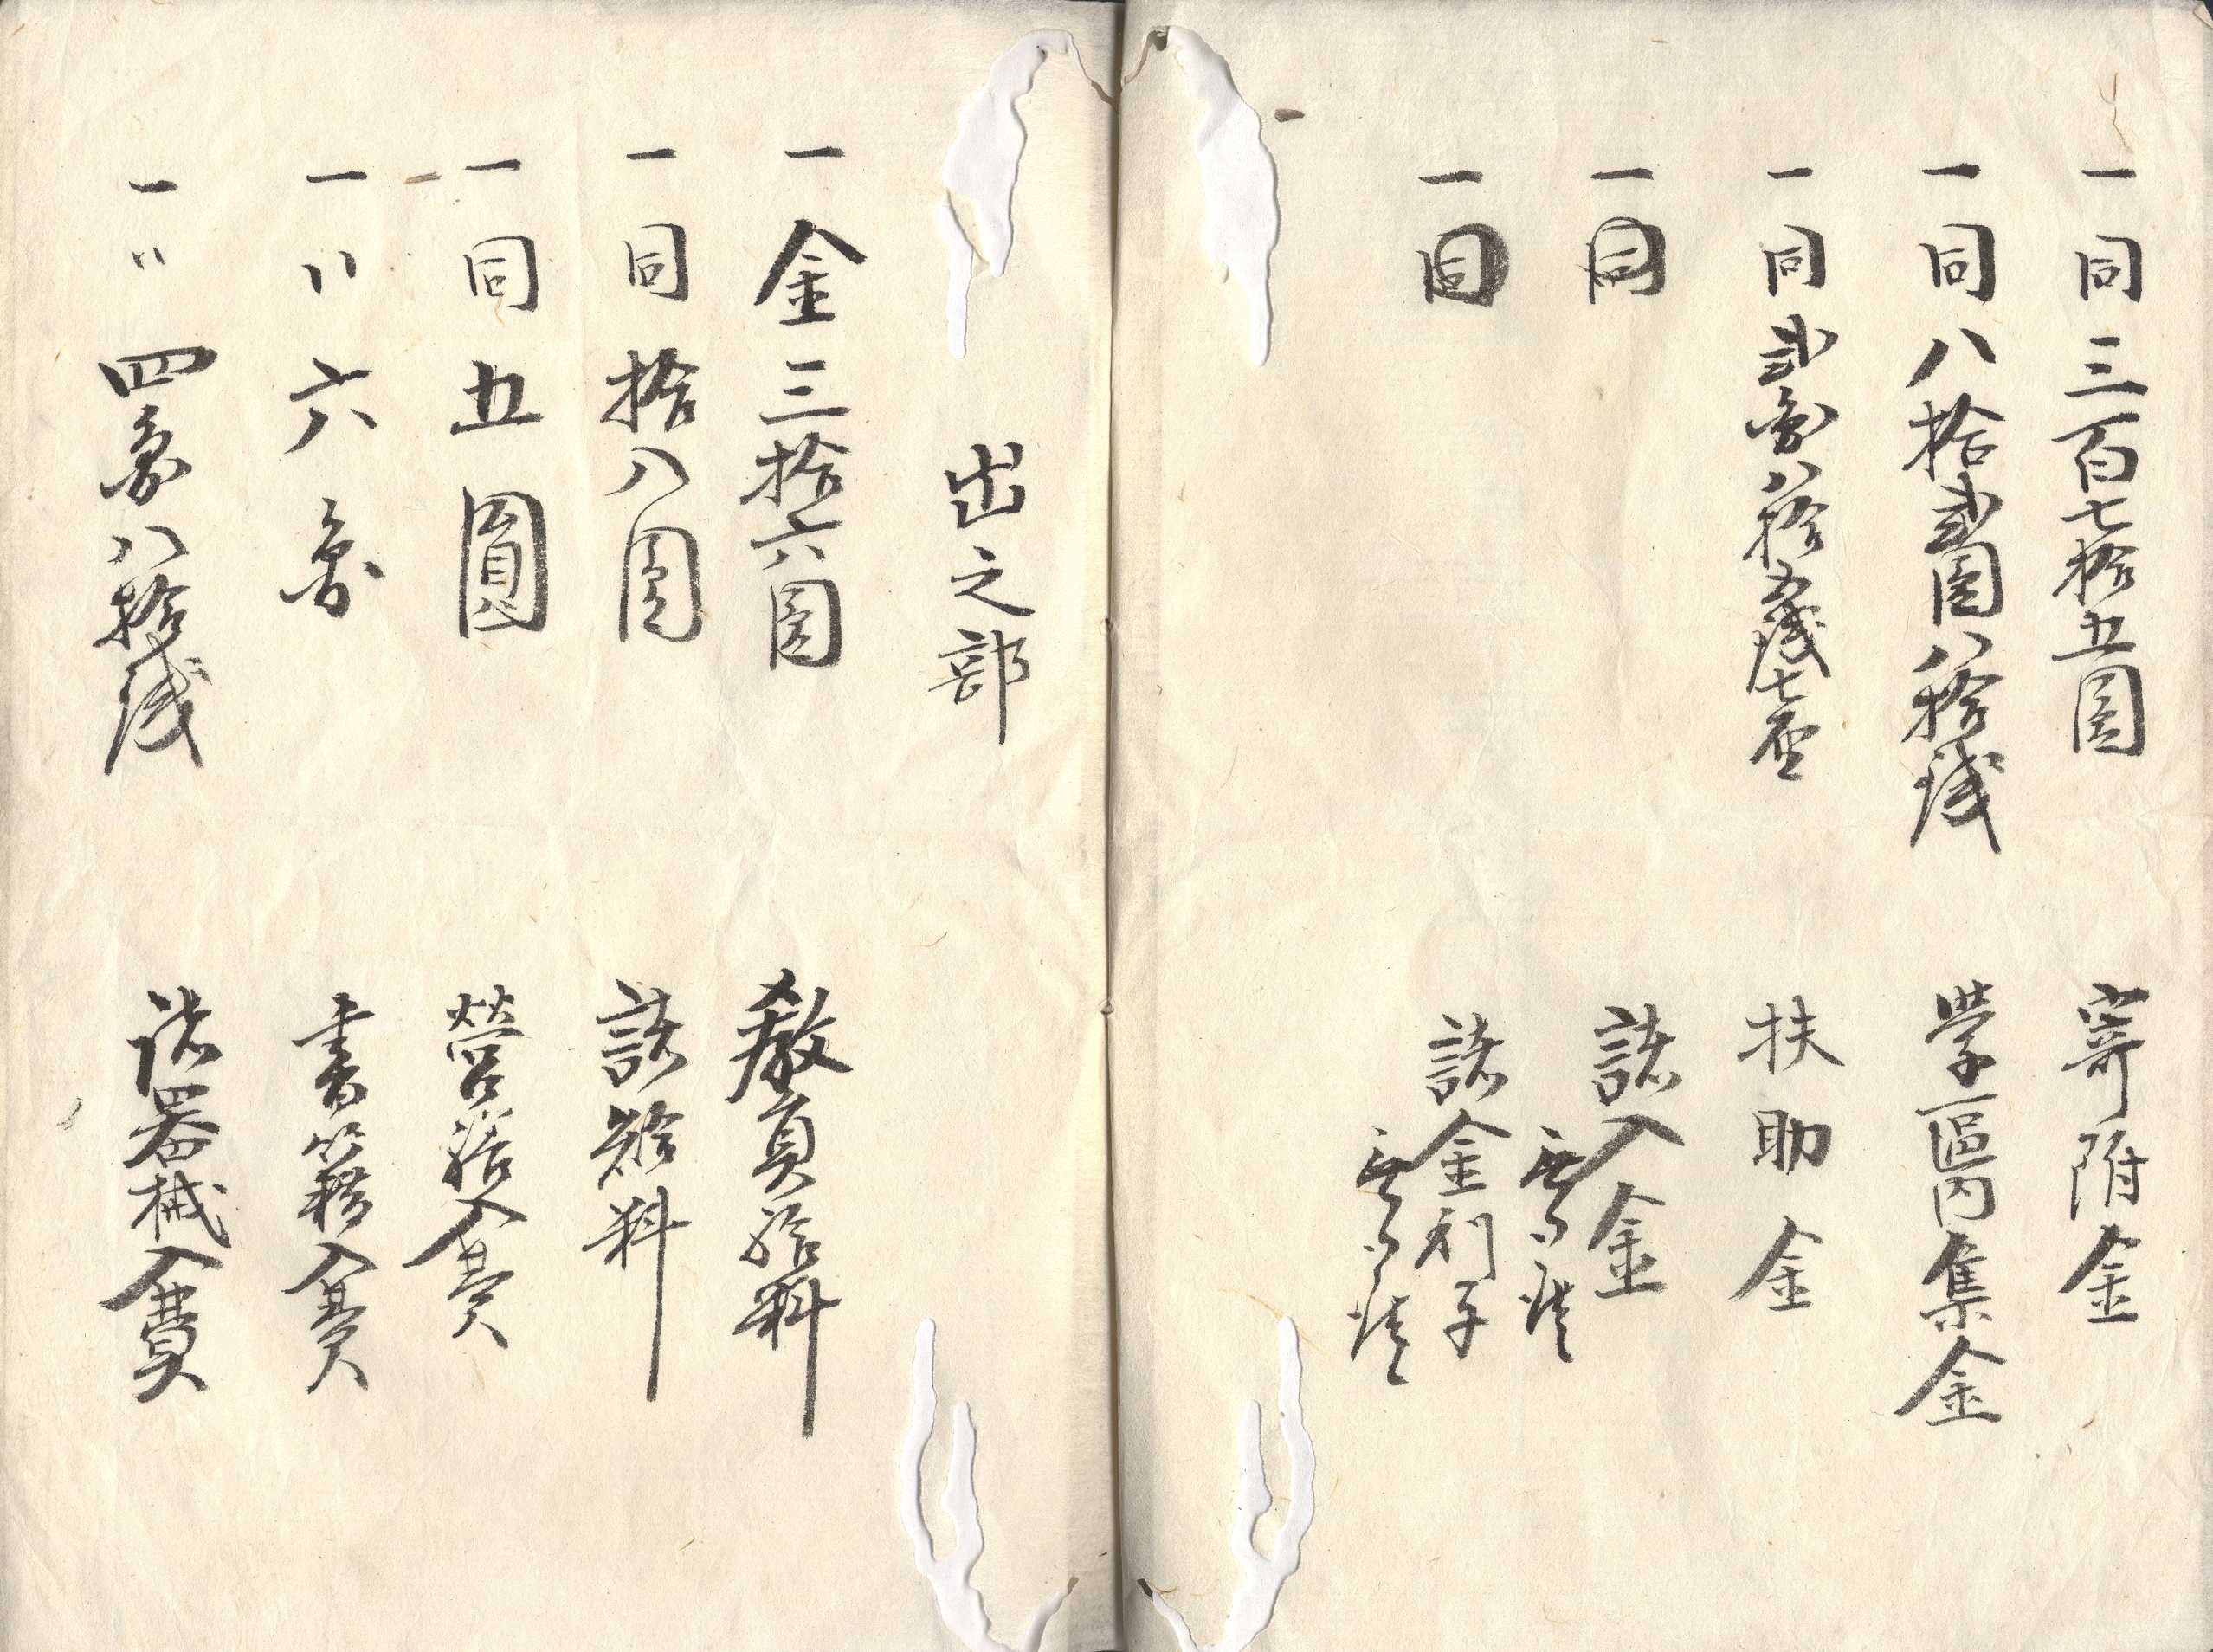 一同三百七拾五圓 寄附金
一同八拾弐圓八拾銭 学區内集金
一同弐圓八拾五銭七厘 扶助金
一同 諸入金
一同 諸金利子
出之部
一金三拾六圓 教員給料
一同拾八圓 諸給料
一同五圓 營繕入費
一〃六圓 書籍入費
一〃四圓八拾銭 諸器械入費